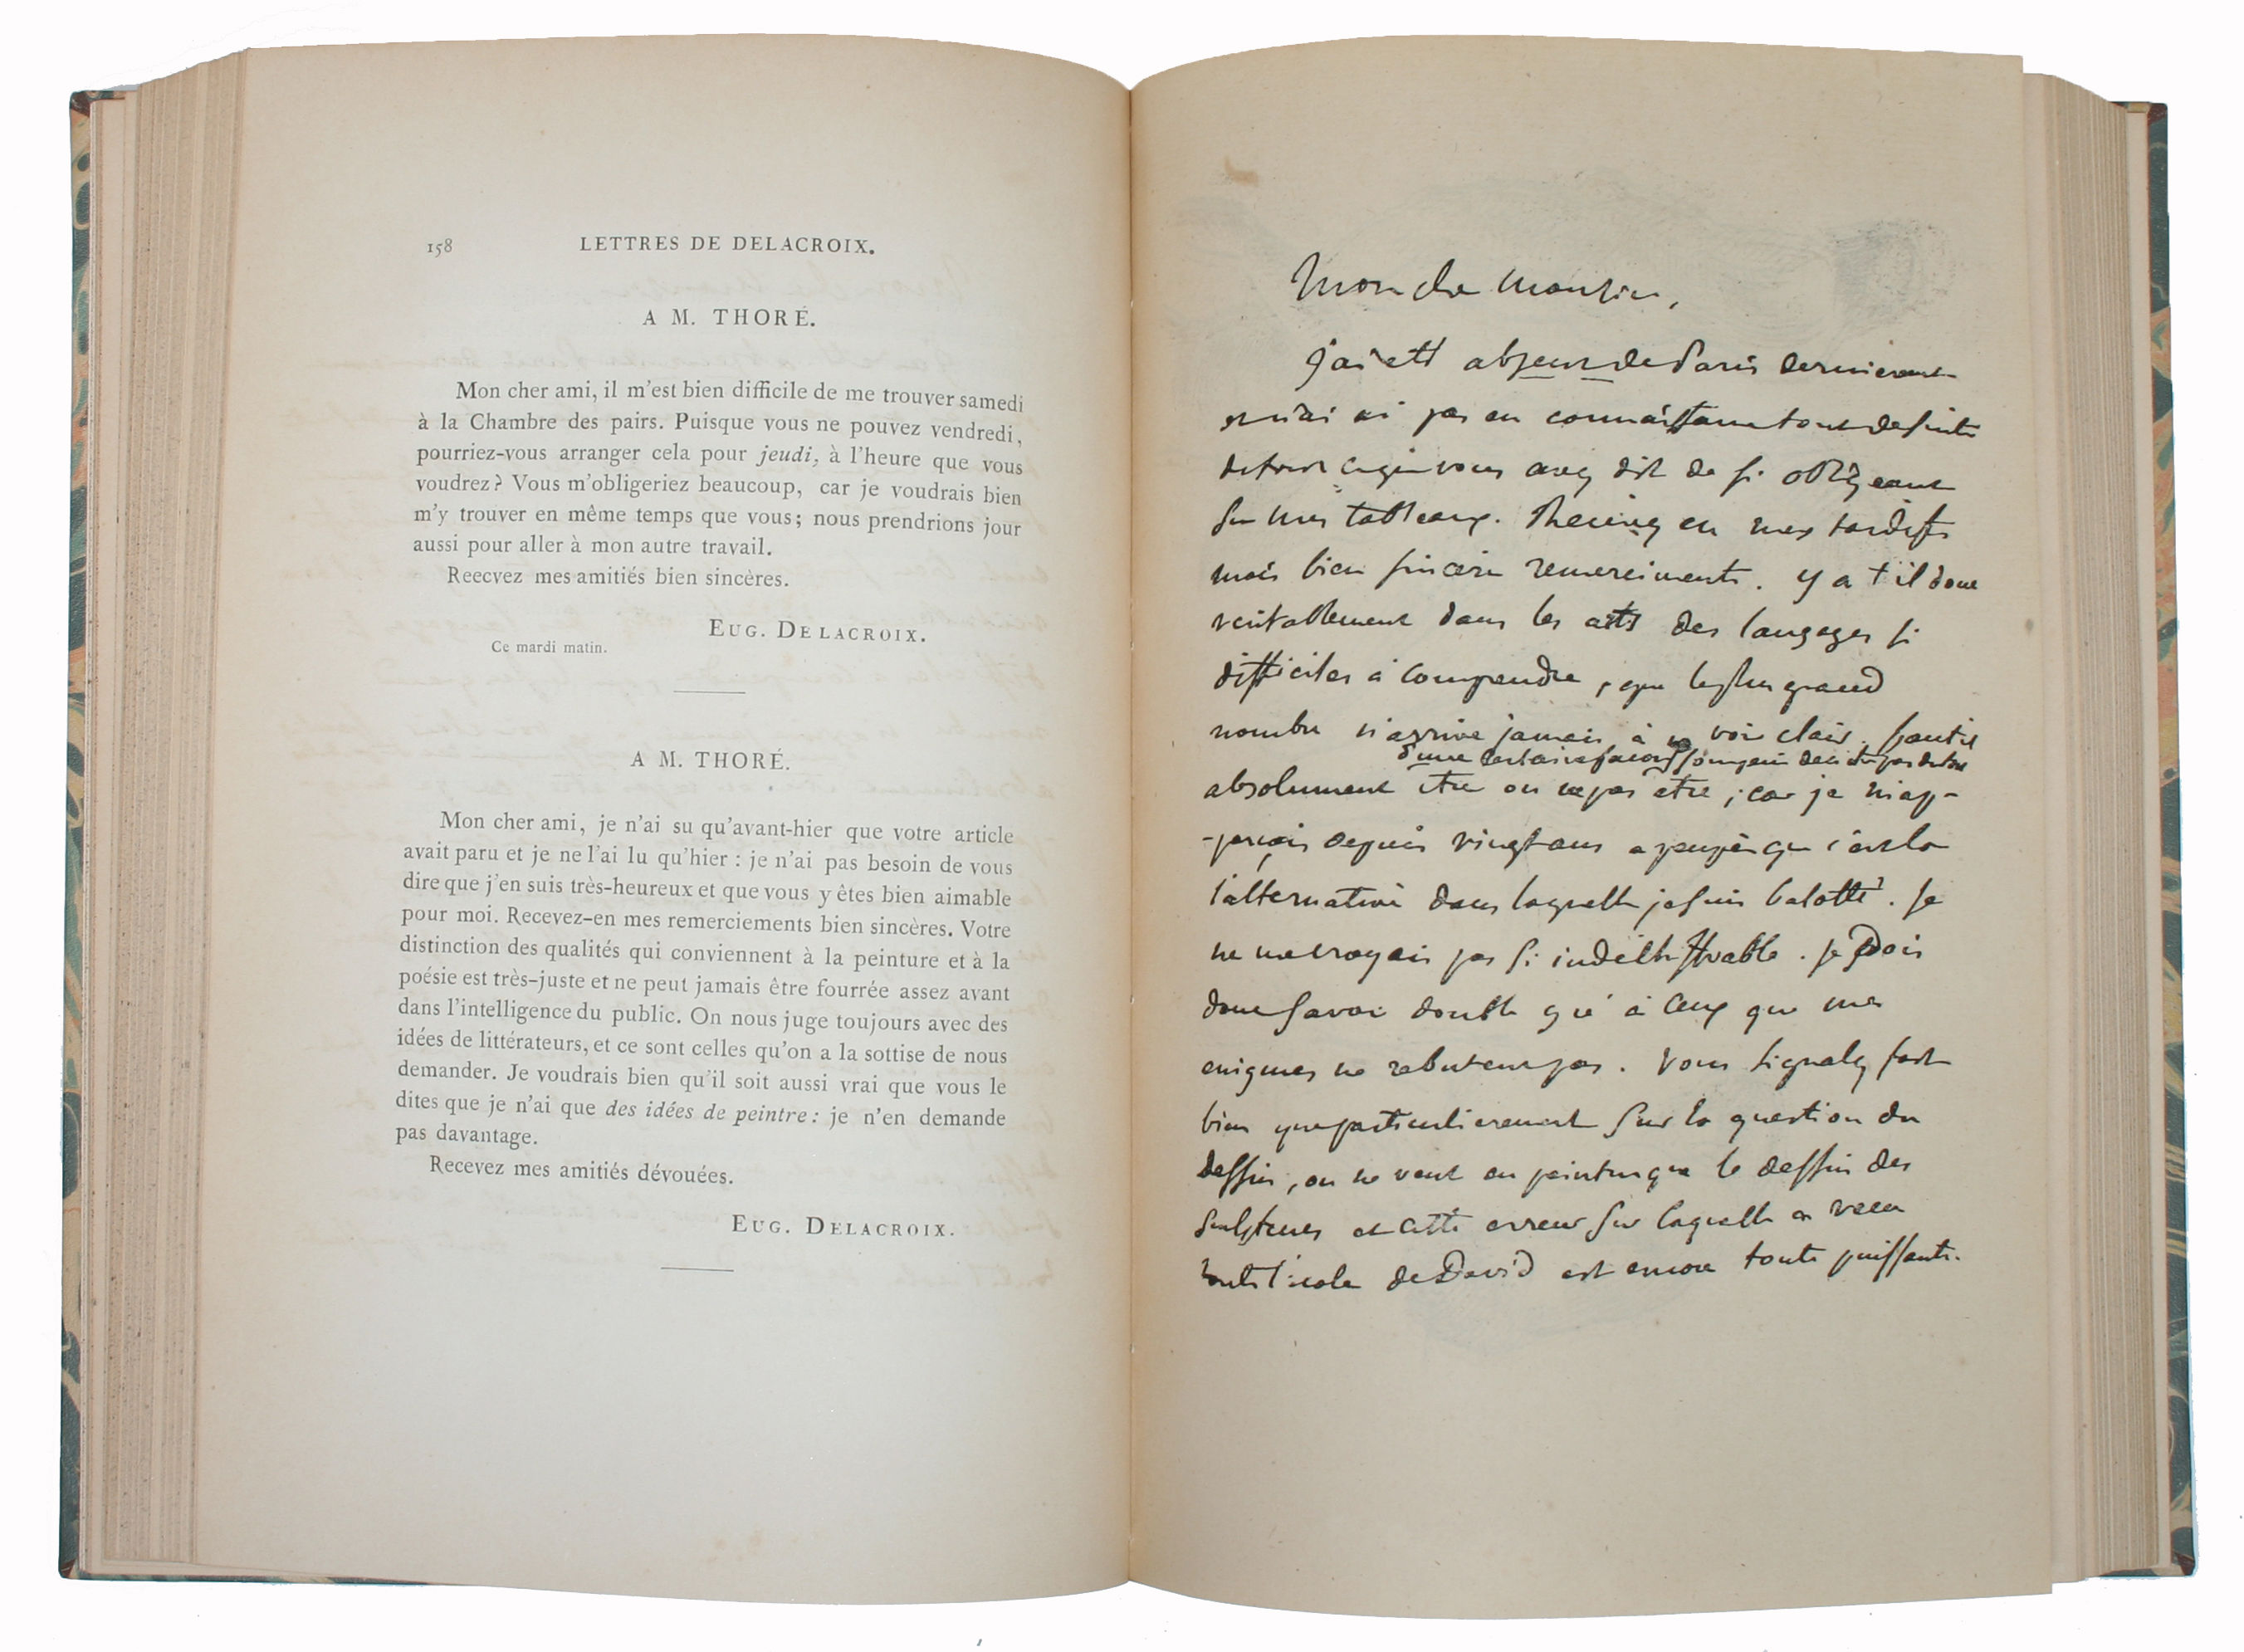 158 LETTRES DE DELACROIX.
A M. THORÉ.
Mon cher ami, il m'est bien difficile de me trouver samedi
à la Chambre des pairs. Puisque vous ne pouvez vendredi,
pourriez-vous arranger cela pour jeudi, à l'heure que vous
voudrez? Vous m'obligeriez beaucoup, car je voudrais bien
m'y trouver en même temps que vous; nous prendrions jour
aussi pour aller à mon autre travail.
Reecvez mes amitiés bien sincères.
EUG. DELACROIX.
Ce mardi matin.
A M. THORÉ.
Mon cher ami, je n'ai su qu'avant-hier que votre article
avait paru et je ne l'ai lu qu'hier : je n'ai pas besoin de vous
dire que j'en suis très-heureux et que vous y êtes bien aimable
pour moi. Recevez-en mes remerciements bien sincères. Votre
distinction des qualités qui conviennent à la peinture et à la
poésie est très-juste et ne peut jamais être fourrée assez avant
dans l'intelligence du public. On nous juge toujours avec des
idées de littérateurs, et ce sont celles qu'on a la sottise de nous
demander. Je voudrais bien qu'il soit aussi vrai que vous le
dites que je n'ai que des idées de peintre : je n'en demande
pas davantage.
Recevez mes amitiés dévouées.
EUG. DELACROIX.
Mon cher Monsieur,
J'ai été absent de Paris dernierement
et n'ai pas eu connaissance tout de suite
de tout ce que vous avez dit de si obligeant
sur mes tableaux. Recevez en mes tardifs
mais bien sincères remerciments. Y a t il donc
veritablement dans les arts des langages si
difficiles à comprendre, que le plus grand
nombre n'arrive jamais à y voir clair. Faut il
d'une certaine façon
absolument etre ou ne pas etre ; car je m'ap-
-perçois depuis vingt ans a peu près que c'est la
l'alternative dans laquelle je suis balotté. Je
ne me croyais pas si indéchiffrable. Je dois
donc savoir double gré à ceux que mes
enigmes ne rebutent pas. Vous signalez fort
bien que particulierement sur la question du
dessin, on ne veut en peinture que le dessin des
sculpteurs et cette erreur sur laquelle a vecu
toute l'ecole de David est encore toute puissante.